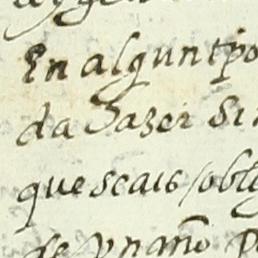 En algun tpo
da hazer Si
que seais / obli
de Vn año p